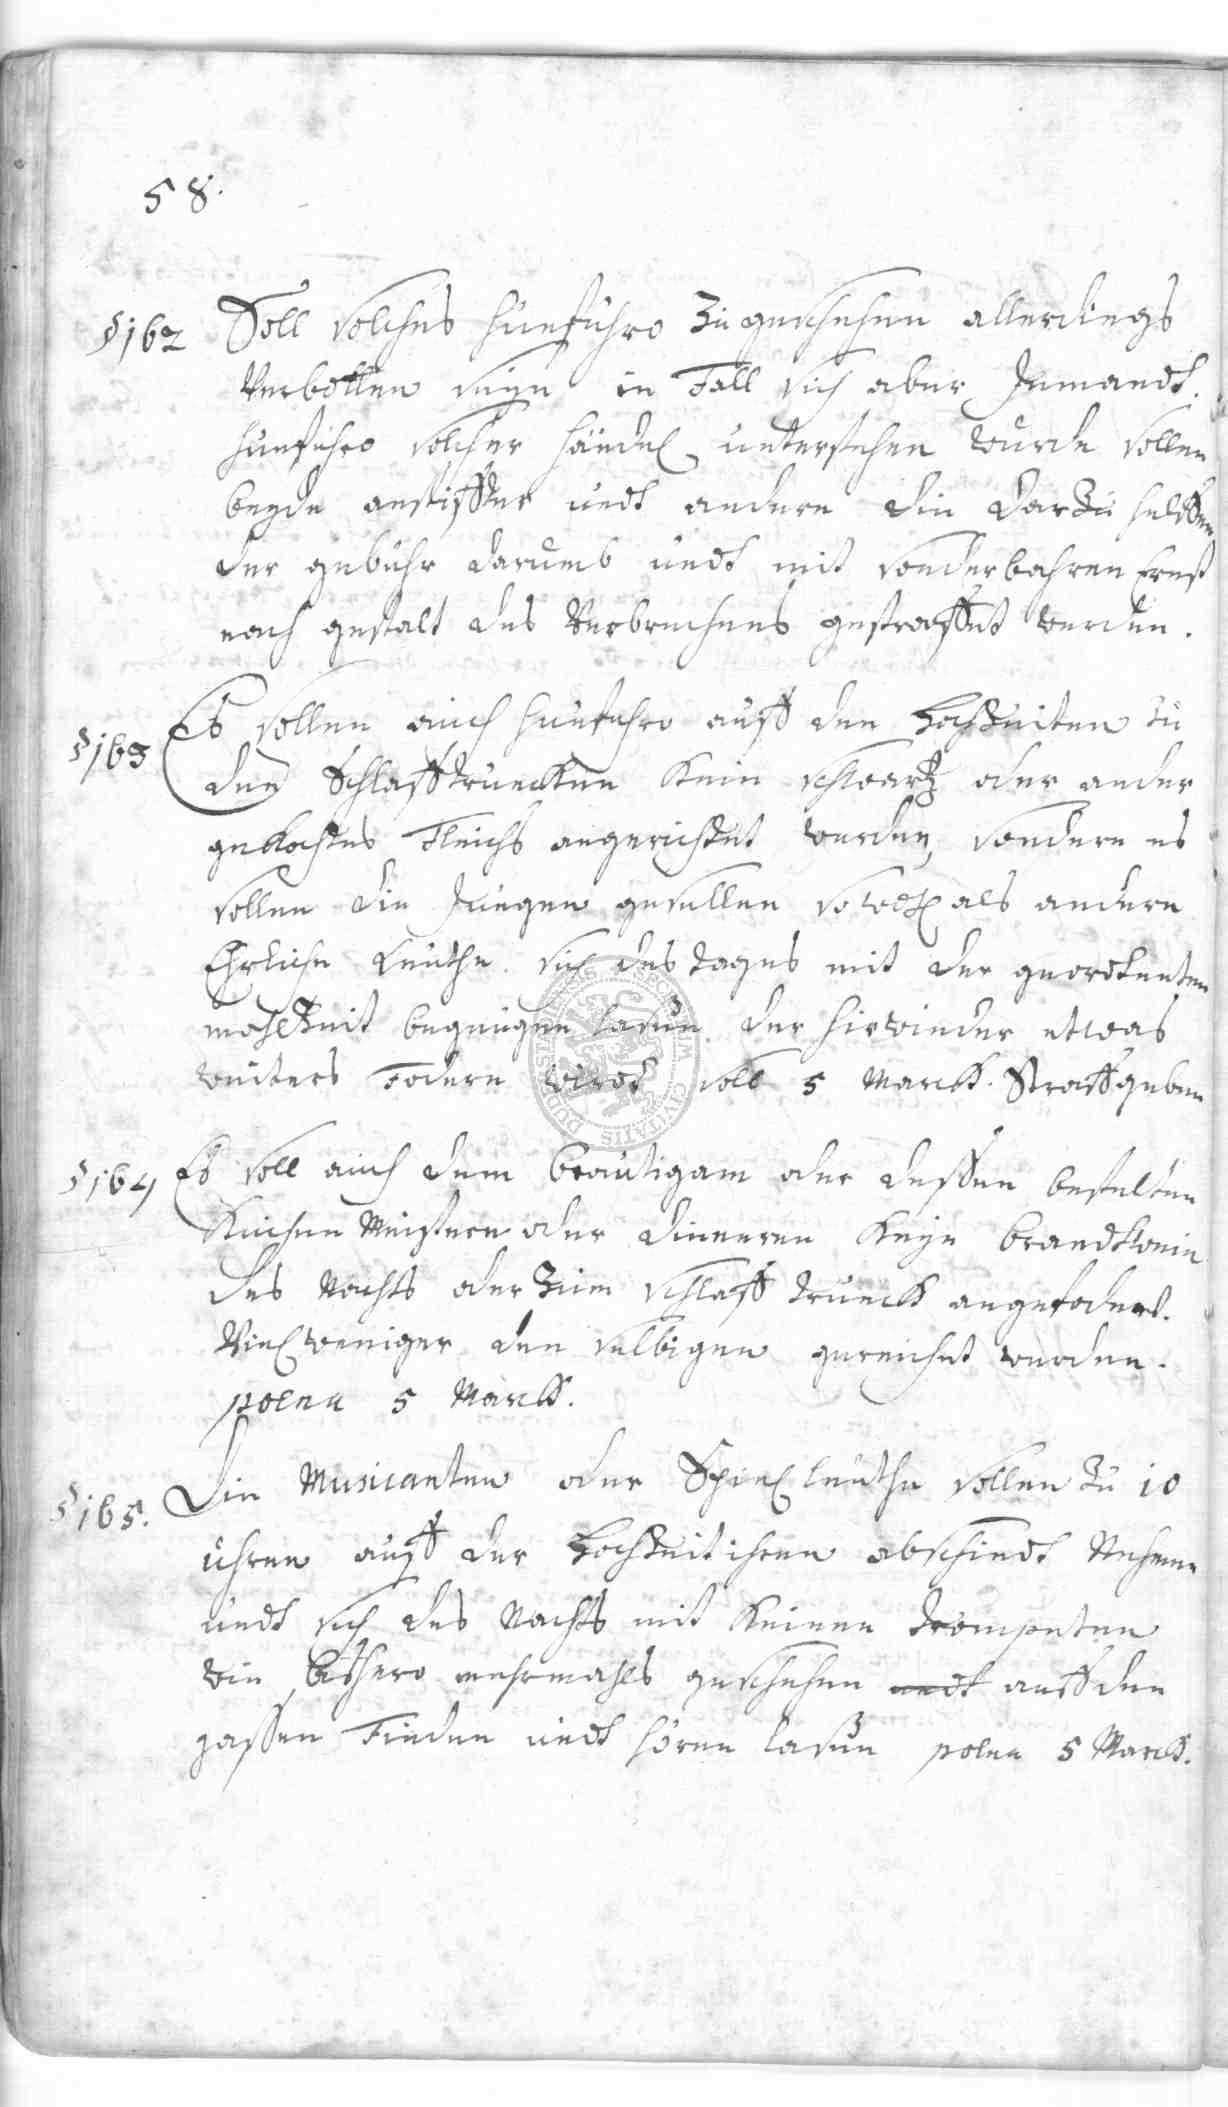 58.
§162 Soll solches hinführo Zu geschehen allerdings
Verbotten seyn in Fall sich aber Jemandt
hinführo solcher händel unterstehen würde sollen
beyde anstiffter undt andere die darzu helffen
der gebühr darumb undt mit sonderbahren Ernst
nach gestalt des Verbrechens gestraffet werden.
§163 Es sollen auch hinführo auff den Hochzeiten zu
den Schlafftruncken kein schwartz oder ander
gekochtes Fleisch angerichtet werden, sondern es
sollen die Jungen gesellen sowohl als andere
Ehrliche Leuthe sich des tages mit der geordtneten
mahlzeit begnügen lasen der hirwieder etwas
weiters Fodern wirdt soll 5 Marck. Straff geben
§164 Es soll auch dem bräutigam oder dessen bestelten
Küchen Meistern oder dieneren keyn brandtwein
des Nachts oder Zum schlaff trunck angefodert.
Viel weniger den selbigen gereichet werden.
poena 5 Marck.
§165. Die Musicanten oder Spiel leuthe sollen zu 10
uhren auff der Hochzeit ihren abschiedt Nehmen
undt sich des Nachts mit keinen trompeten
wie bishero mehrmahls geschehen undt auff den
gassen Finden undt hören lasen poena 5 Marck.